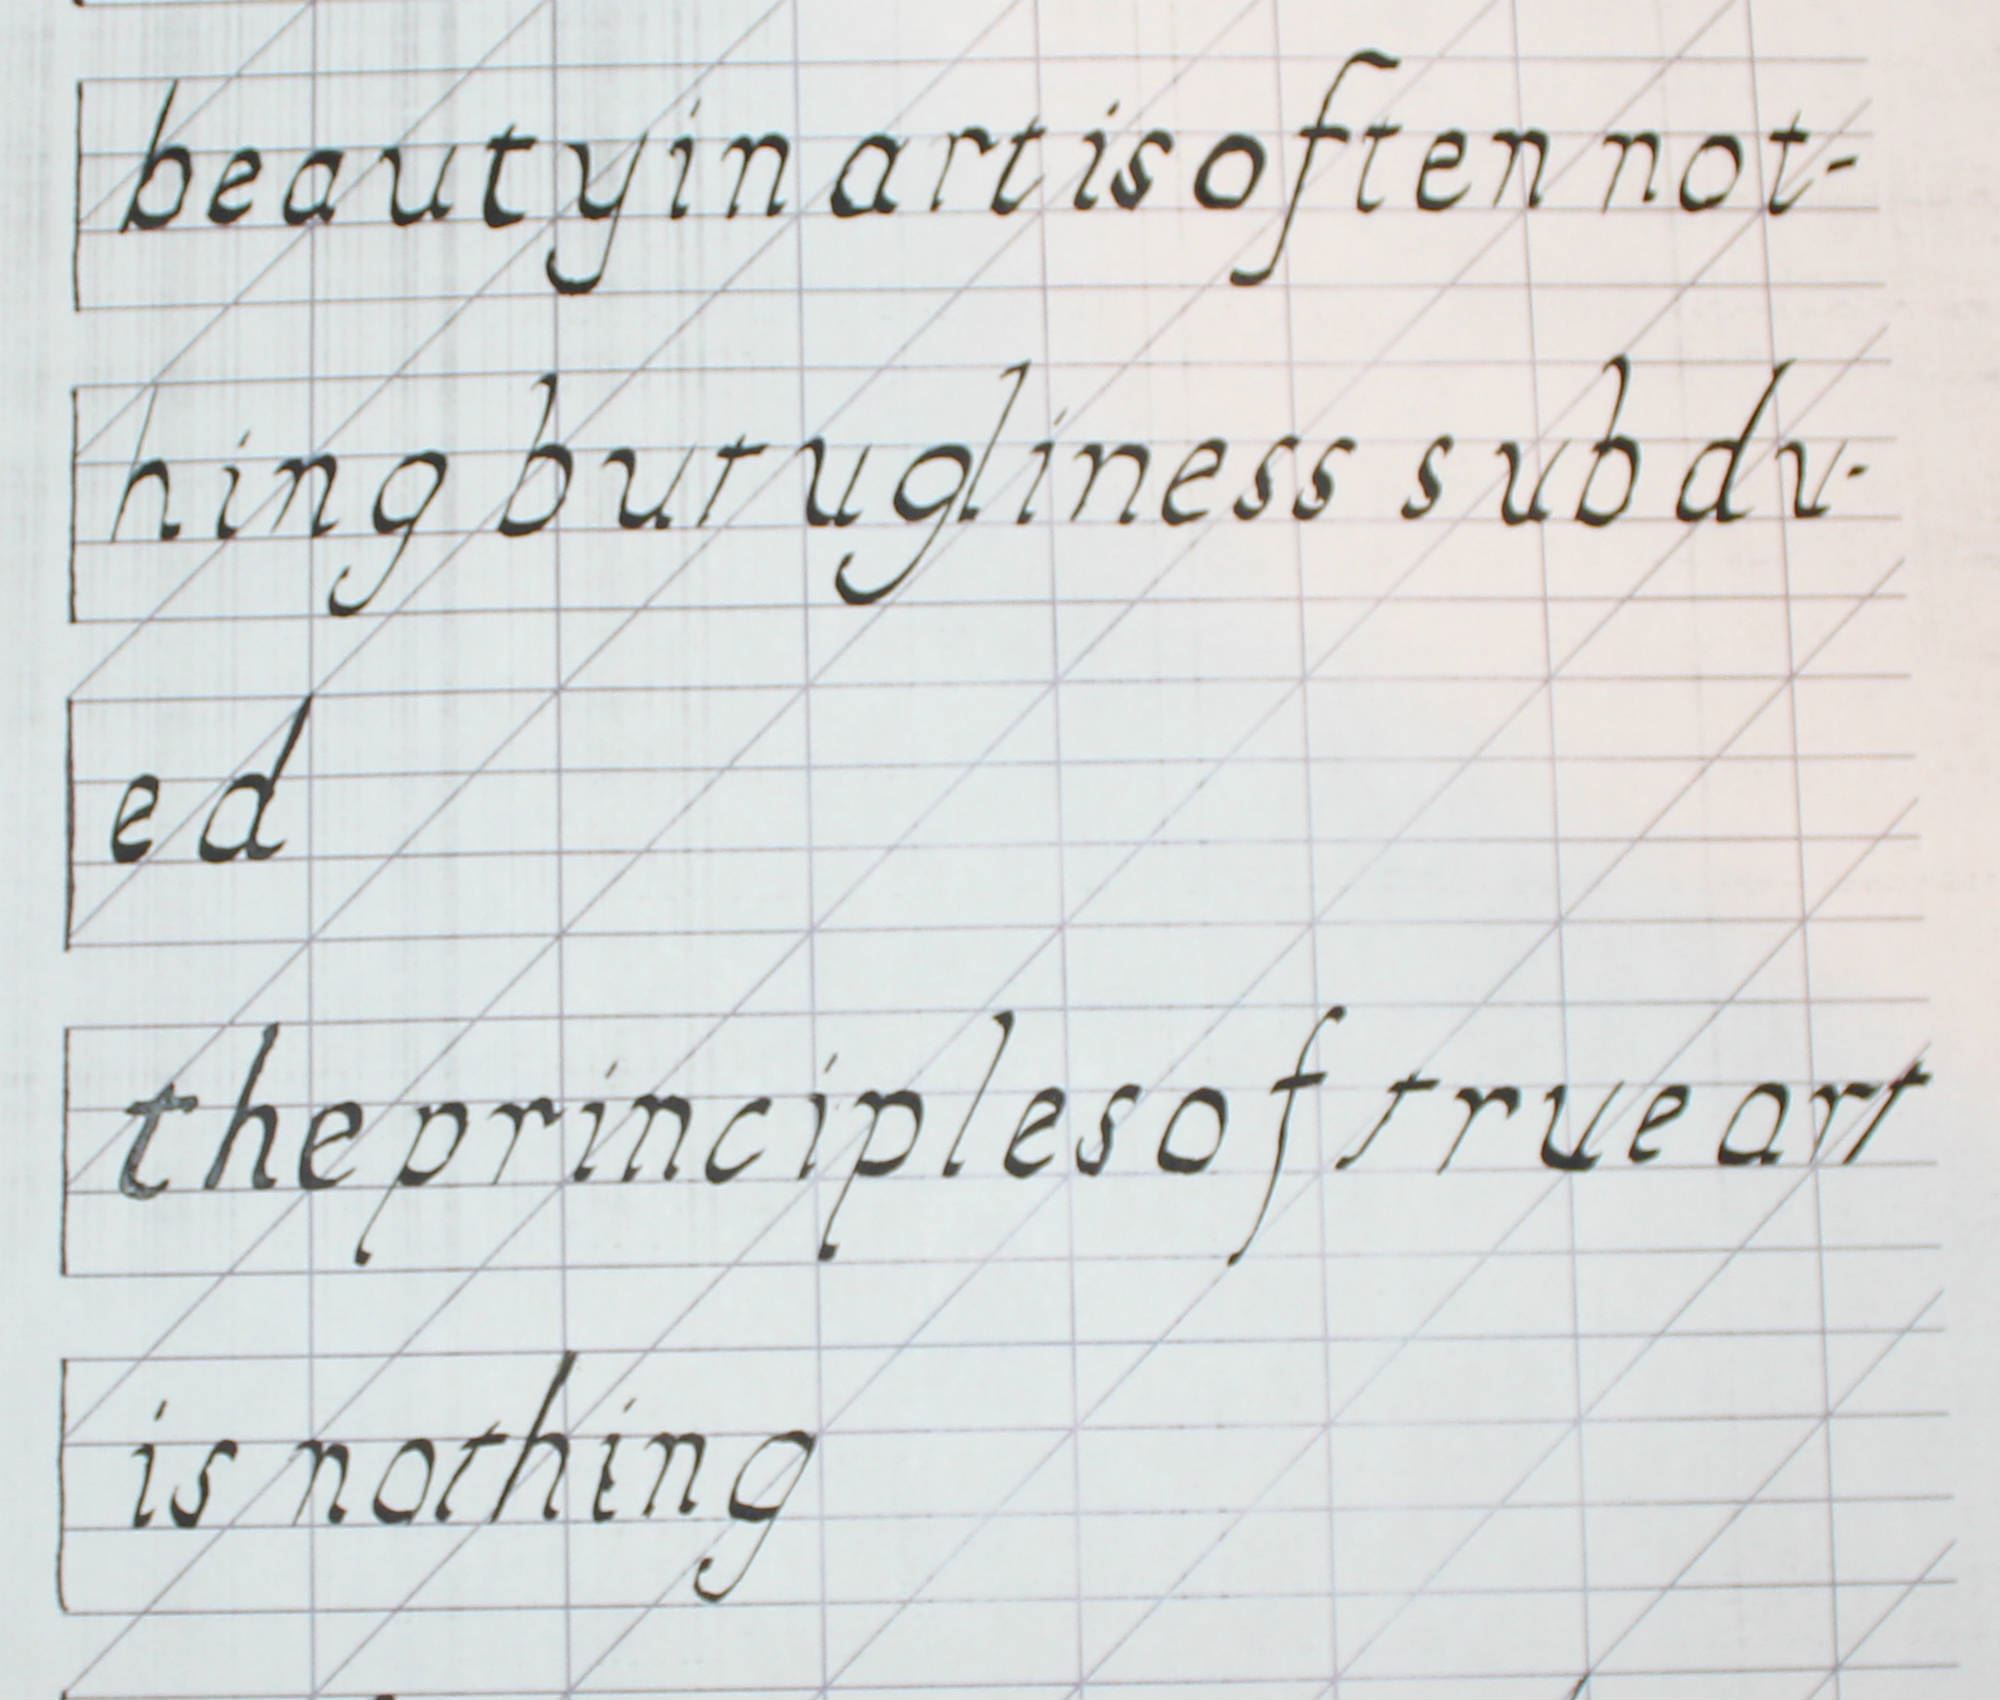 beauty in art is often not-
hing but ugliness subdu-
ed
the principles of true art
is nothing